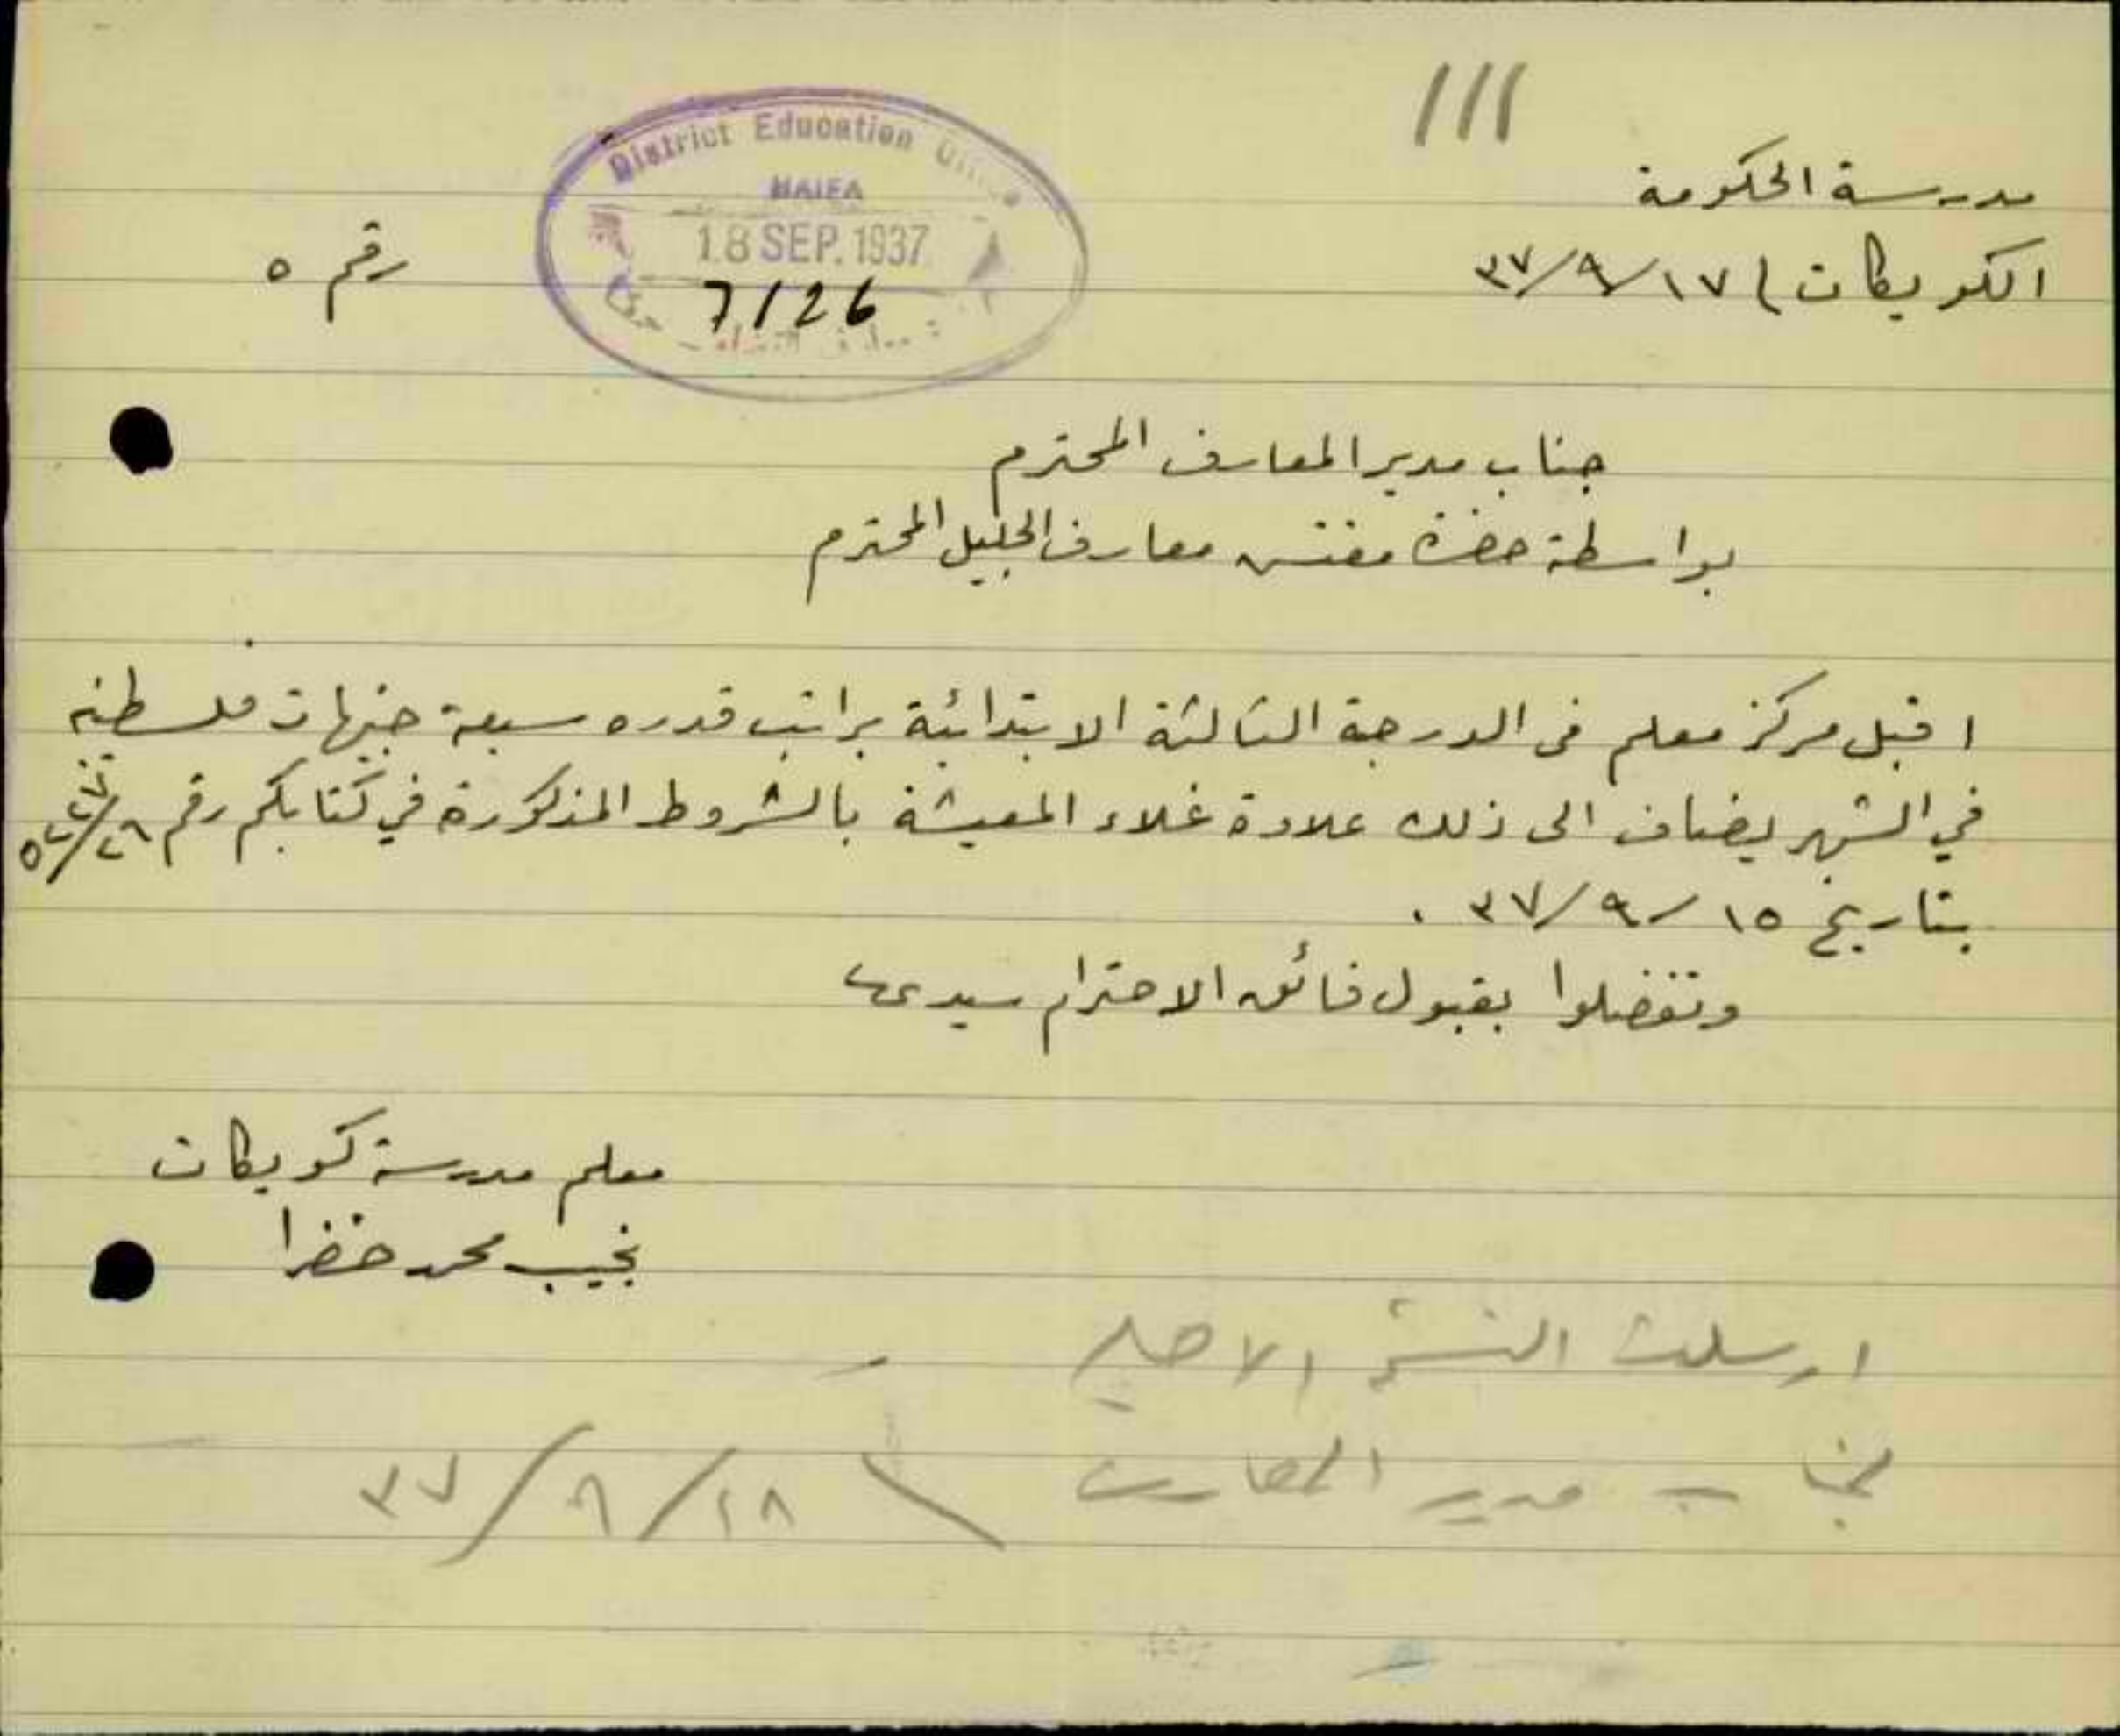 111
مدرسة الحكومة
الكويكات ١٧/٩/٣٧
رقم ٥
District Education Office
HAIFA
18 SEP. 1937
7/26
جناب مدير المعارف المحترم
بواسطة حضرة مفتش معارف الجليل المحترم
اقبل مركز معلم في الدرجة الثالثة الابتدائية براتب قدره سبعة جنيهات فلسطينية
في الشهر يضاف الى ذلك علاوة غلاء المعيشة بالشروط المذكورة في كتابكم رقم
بتاريخ ١٥/٩/٣٧ .
وتفضلوا بقبول فائق الاحترام سيدي
معلم مدرسة كويكات
نجيب محمد خضرا
ارسلت النسخة الاصلية
لجناب مدير المعارف
١٨/٩/٣٧